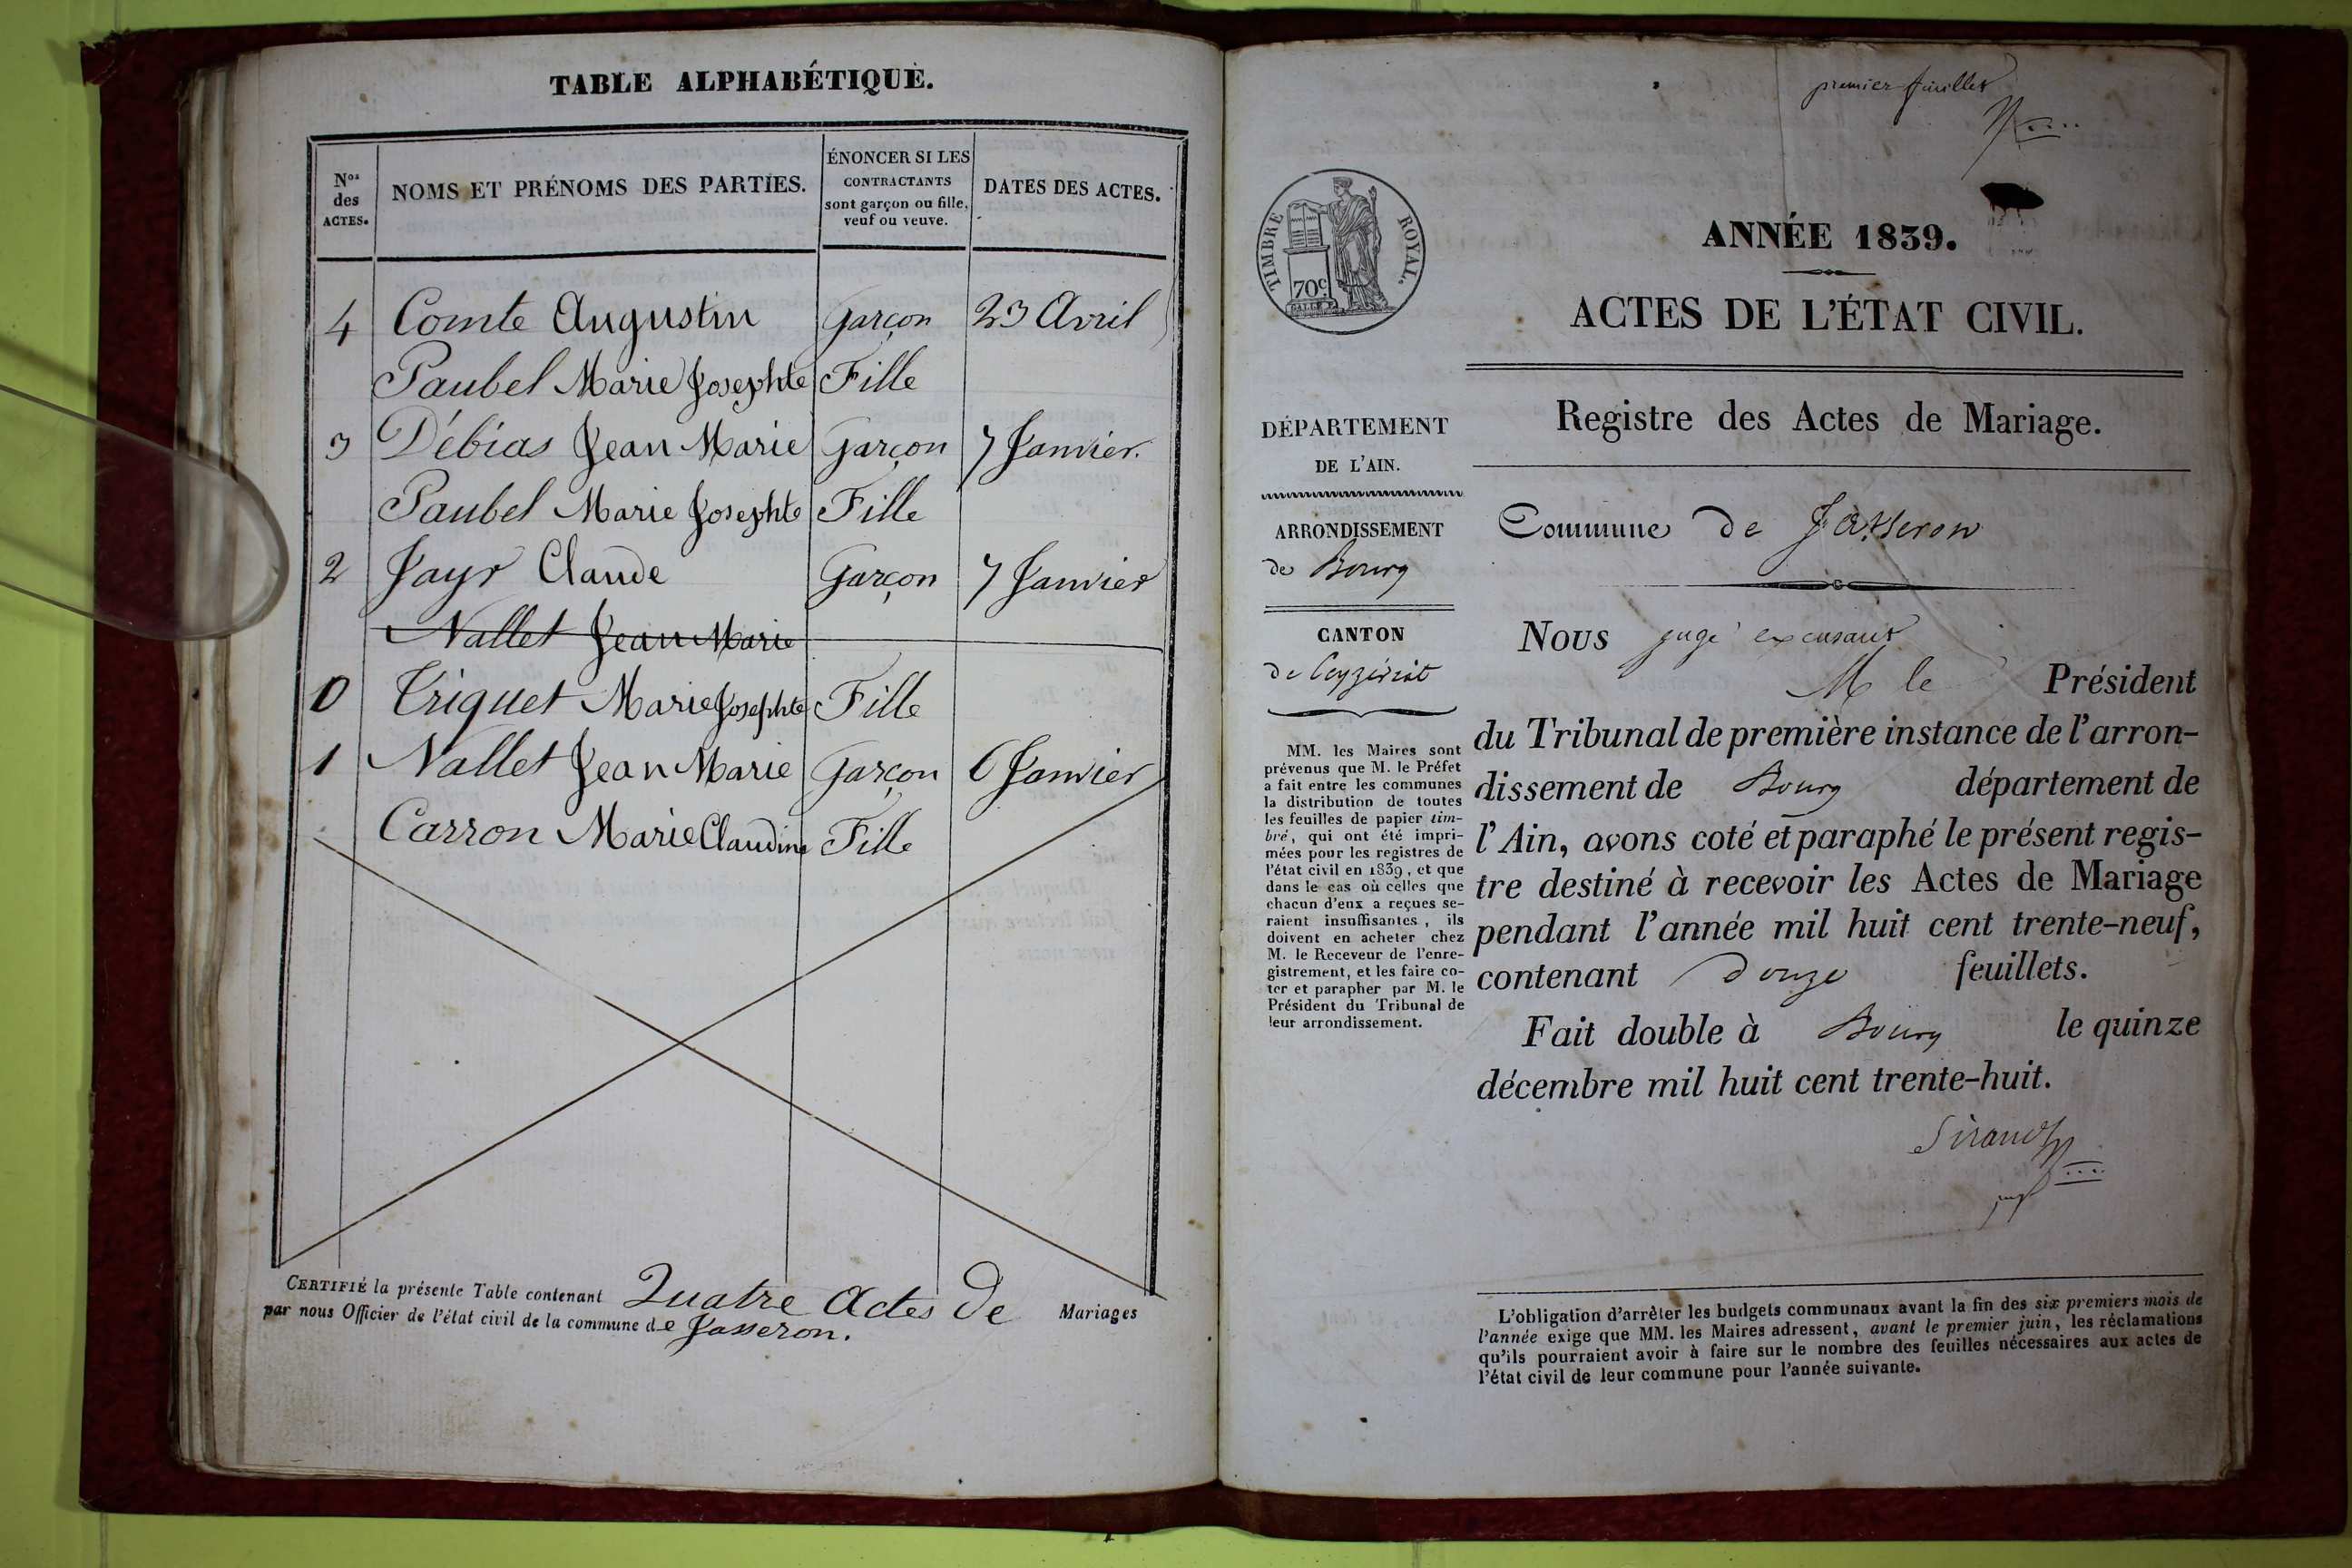 TABLE ALPHABÉTIQUE.
Nos des ACTES.
NOMS ET PRÉNOMS DES PARTIES.
ÉNONCER SI LES
CONTRACTANTS
sont garçon ou fille,
veuf ou veuve.
DATES DES ACTES.
4 Comte Augustin Garçon 23 Avril
Paubel Marie Josephte Fille
3 Débias Jean Marie Garçon 7 Janvier.
Paubel Marie Josephte Fille
2 Jayr Claude Garçon 7 Janvier
Nallet Jean Marie
0 Triquet Marie Josephte Fille
1 Nallet Jean Marie Garçon 6 Janvier
Carron Marie Claudine Fille
CERTIFIÉ la présente Table contenant Quatre Actes de Mariages
par nous Officier de l'état civil de la commune de Jasseron.
premier feuillet
TIMBRE ROYAL.
70c.
ANNÉE 1839.
ACTES DE L'ÉTAT CIVIL.
Registre des Actes de Mariage.
DÉPARTEMENT
DE L'AIN.
ARRONDISSEMENT
de Bourg
CANTON
de Ceyzériat
MM. les Maires sont
prévenus que M. le Préfet
a fait entre les communes
la distribution de toutes
les feuilles de papier tim-
bré, qui ont été impri-
mées pour les registres de
l'état civil en 1839, et que
dans le cas où celles que
chacun d'eux a reçues se-
raient insuffisantes, ils
doivent en acheter chez
M. le Receveur de l'enre-
gistrement, et les faire co-
ter et parapher par M. le
Président du Tribunal de
leur arrondissement.
Commune de Jasseron
Nous juge excusant
M le Président
du Tribunal de première instance de l'arron-
dissement de Bourg département de
l'Ain, avons coté et paraphé le présent regis-
tre destiné à recevoir les Actes de Mariage
pendant l'année mil huit cent trente-neuf,
contenant douze feuillets.
Fait double à Bourg le quinze
décembre mil huit cent trente-huit.
Sirand
juge
L'obligation d'arrêter les budgets communaux avant la fin des six premiers mois de
l'année exige que MM. les Maires adressent, avant le premier juin, les réclamations
qu'ils pourraient avoir à faire sur le nombre des feuilles nécessaires aux actes de
l'état civil de leur commune pour l'année suivante.